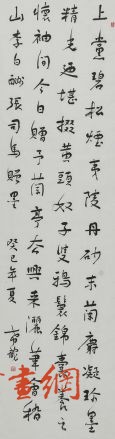 上黨碧松煙夷陵丹砂末蘭麝凝珍墨
精光迺堪掇黃頭奴子雙鴉鬟錦囊養之
懷袖間今日贈予蘭亭去興來灑筆會稽
山李白酬張司馬贈墨 癸巳年夏
畫網